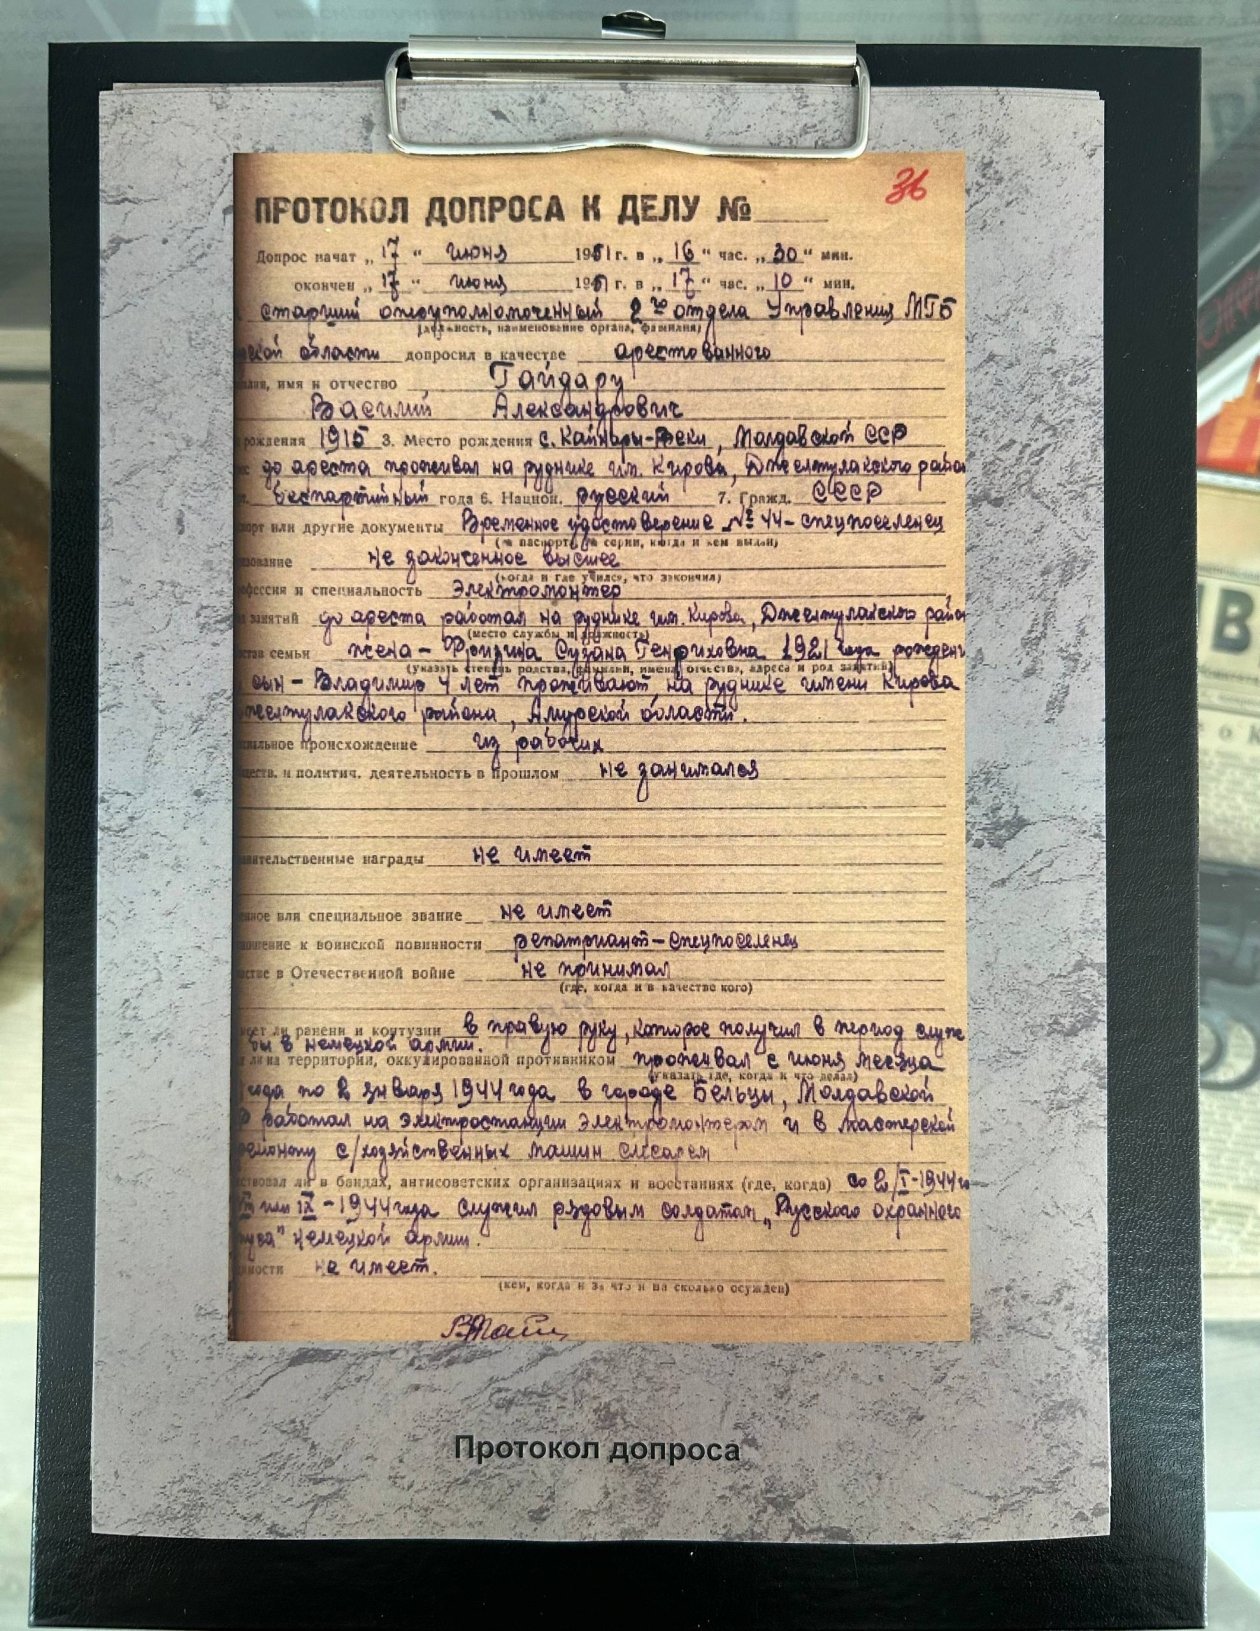 36
ПРОТОКОЛ ДОПРОСА К ДЕЛУ №
Допрос начат „ 17 “ июня 1951 г. в „ 16 “ час. „ 30 “ мин.
окончен „ 17 “ июня 1951 г. в „ 17 “ час. „ 10 “ мин.
старший оперуполномоченный 2го отдела Управления МГБ
(должность, наименование органа, фамилия)
ской области допросил в качестве арестованного
имя и отчество Гайдару
Василий Александрович
рождения 1915 3. Место рождения с. Кайнары-Веки, Молдавской ССР
до ареста проживал на руднике им. Кирова, Джелтулакского район
беспартийный года 6. Национ. русский 7. Гражд. СССР
порт или другие документы Временное удостоверение №44-спецпоселенец
(№ паспорта, серии, когда и кем выдан)
зование не законченное высшее
(когда и где учился, что закончил)
фессия и специальность Электромонтер
занятий до ареста работал на руднике им. Кирова, Джелтулакского район
(место службы и должность)
став семьи жена - Сузана Генриховна 1921 года рожден
(указать степень родства, фамилии, имена, отчества, адреса и род занятий)
сын - Владимир 4 лет проживают на руднике имени Кирова
желтулакского района, Амурской области.
иальное происхождение из рабочих
ществ. и политич. деятельность в прошлом не занимался
вительственные награды не имеет
енное или специальное звание не имеет
ношение к воинской повинности репатриант-спецпоселенец
стие в Отечественной войне не принимал
(где, когда и в качестве кого)
еет ли ранени и контузии в правую руку, которое получил в период служ
бы в немецкой армии.
ли на территории, оккупированной противником проживал с июня месяца
(указать где, когда и что делал)
года по 2 января 1944 года в городе Бельцы, Молдавской
Р работал на электростанции электромонтером и в мастерской
ремонту с/хозяйственных машин слесарем
ствовал ли в бандах, антисоветских организациях и восстаниях (где, когда) со 2/I-1944 г
или IX - 1944 года служил рядовым солдатом „Русского охранного
пуса" немецкой армии.
димости не имеет.
(кем, когда и за что и на сколько осужден)
Протокол допроса